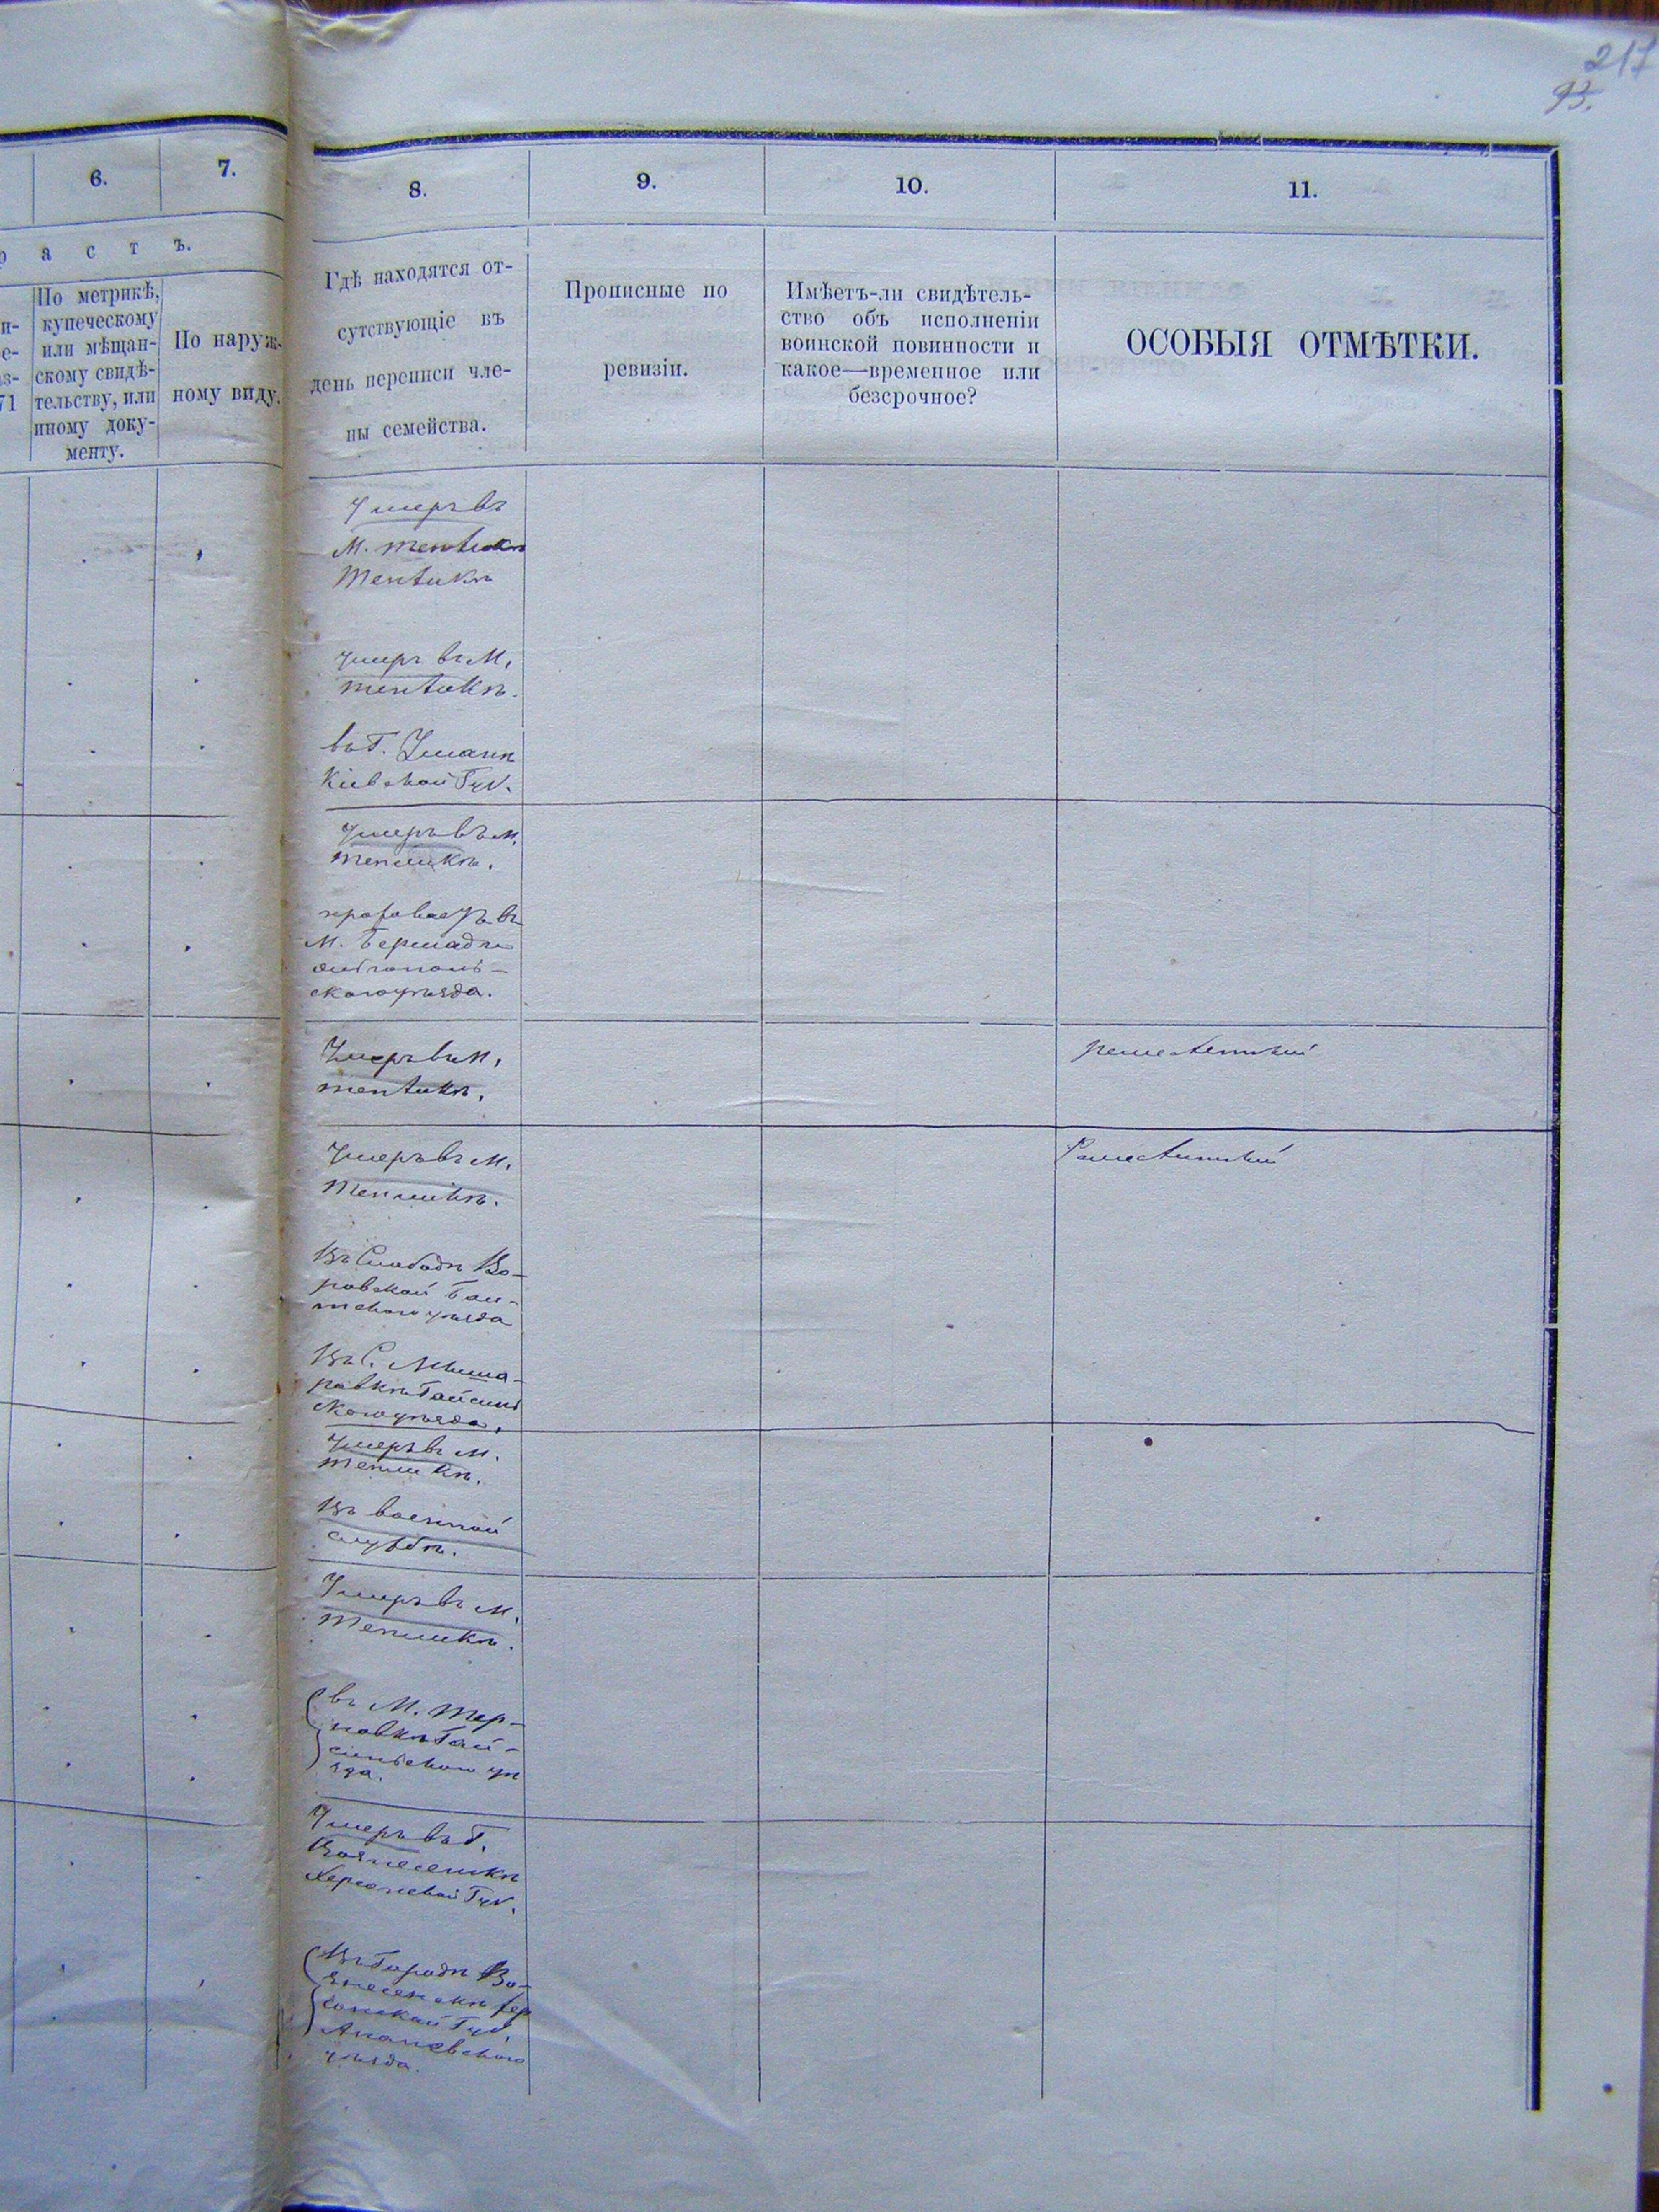 217
93.
6.
7.
8.
9.
10.
11.
р а с т ъ.
По метрикѣ,
купеческому
или мѣщан-
скому свидѣ-
тельству, или
иному доку-
менту.
По наруж-
ному виду.
71
Гдѣ находятся от-
сутствующіе въ
день переписи чле-
ны семейства.
Прописные по
ревизіи.
Имѣетъ-ли свидѣтель-
ство объ исполненіи
воинской повинности и
какое—временное или
безсрочное?
ОСОБЫЯ ОТМѢТКИ.
Умеръ въ
М.
Тепликѣ
Умеръ въ М.
Тепликѣ.
въ Г. Умани
Кіевской Губ.
Умеръ въ м.
Тепликѣ.
въ
М. Бершади
Ольгополь-
скаго уѣзда.
Умеръ въ М.
Тепликѣ.
Умеръ въ М.
Тепликѣ.
Въ Слободѣ
Бал-
тскаго уѣзда
Въ С.
Гайсин
скаго уѣзда.
Умеръ въ М.
Тепликѣ.
Въ военной
службѣ.
Умеръ въ М.
Тепликѣ.
въ М. Тер-
новкѣ Гай-
синскаго уѣ
зда.
Умеръ въ Г.
Вознесенскѣ
Херсонской Губ.
Въ Городѣ Во-
знесенскѣ Хер
сонской Губ.
Ананьевскаго
уѣзда.